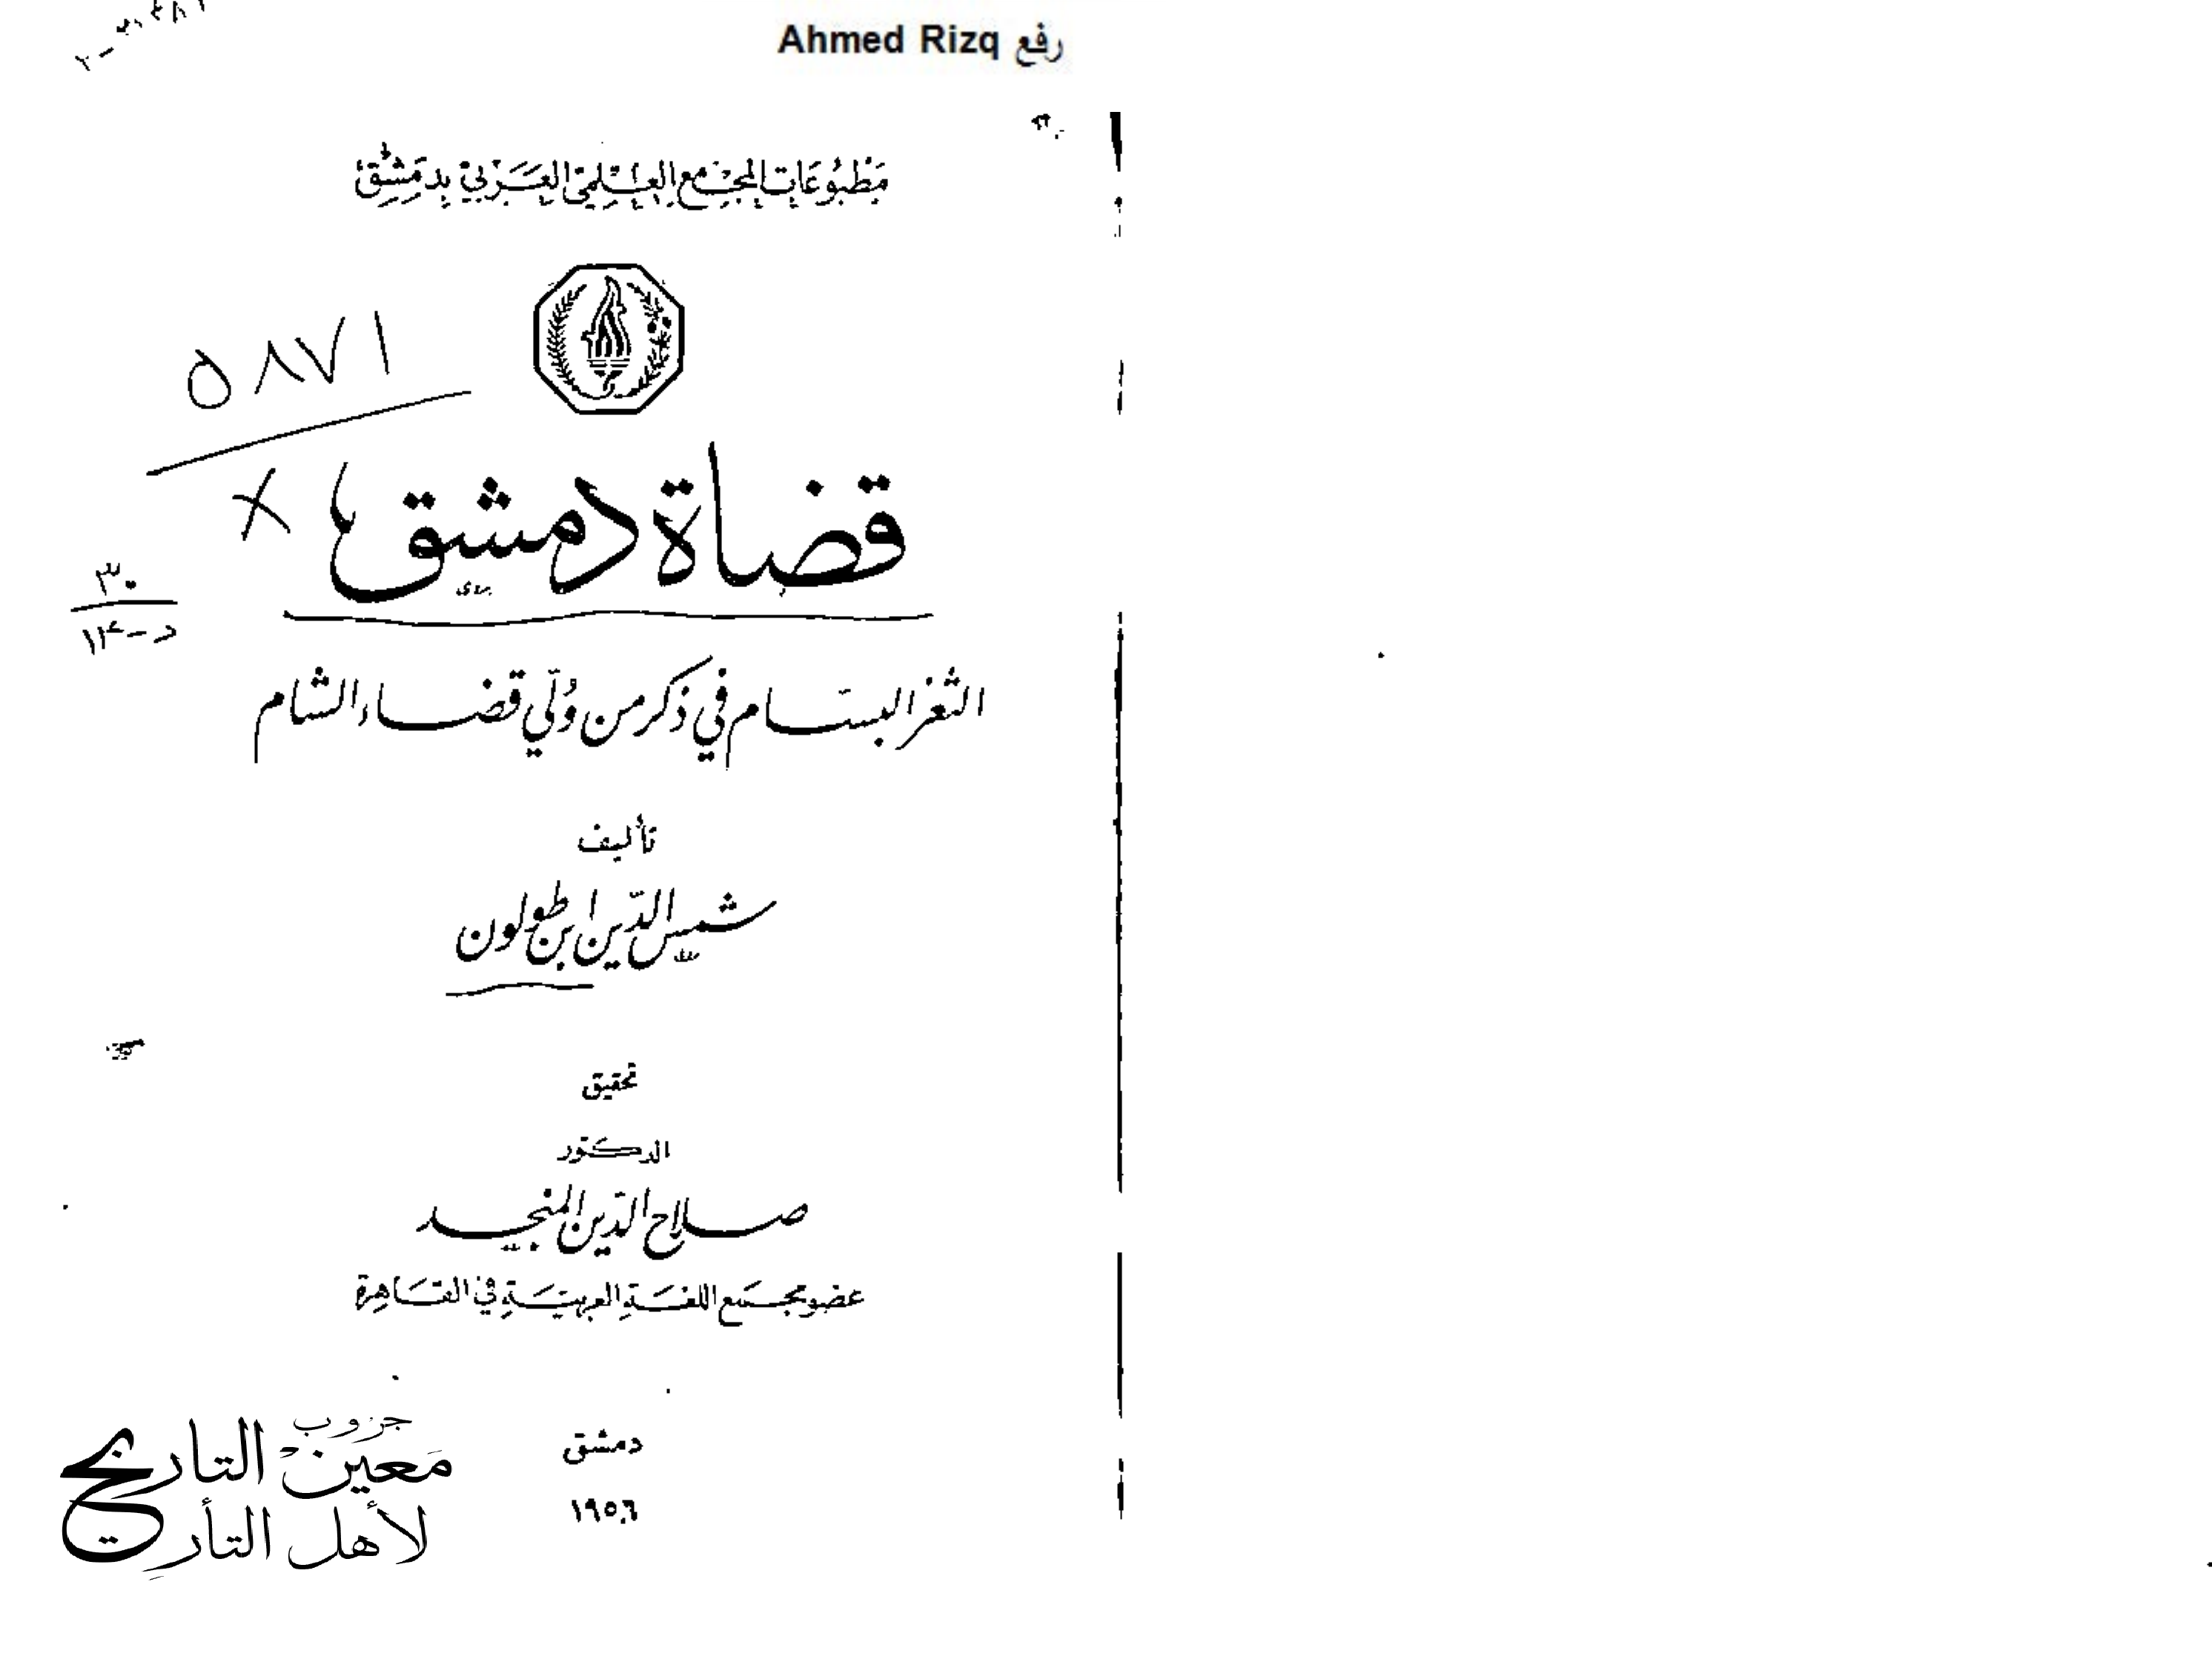 رفع Ahmed Rizq
مَطبُوعَات المجْمَع العِلمي العَرَبي بدمَشق
٥٨٧١
قضاة دمشق
٣٠
د-١٤
الثغر البسّام في ذكر من وُلّي قضاء الشام
تأليف
شمس الدّين ابن طولون
تحقيق
الدكتور
صلاح الدّين المنجد
عضو مجمَع اللغَة العربيَة في القَاهِرة
دمشق
١٩٥٦
جروب
مَعينْ التاريخ
لأهل التأريخ